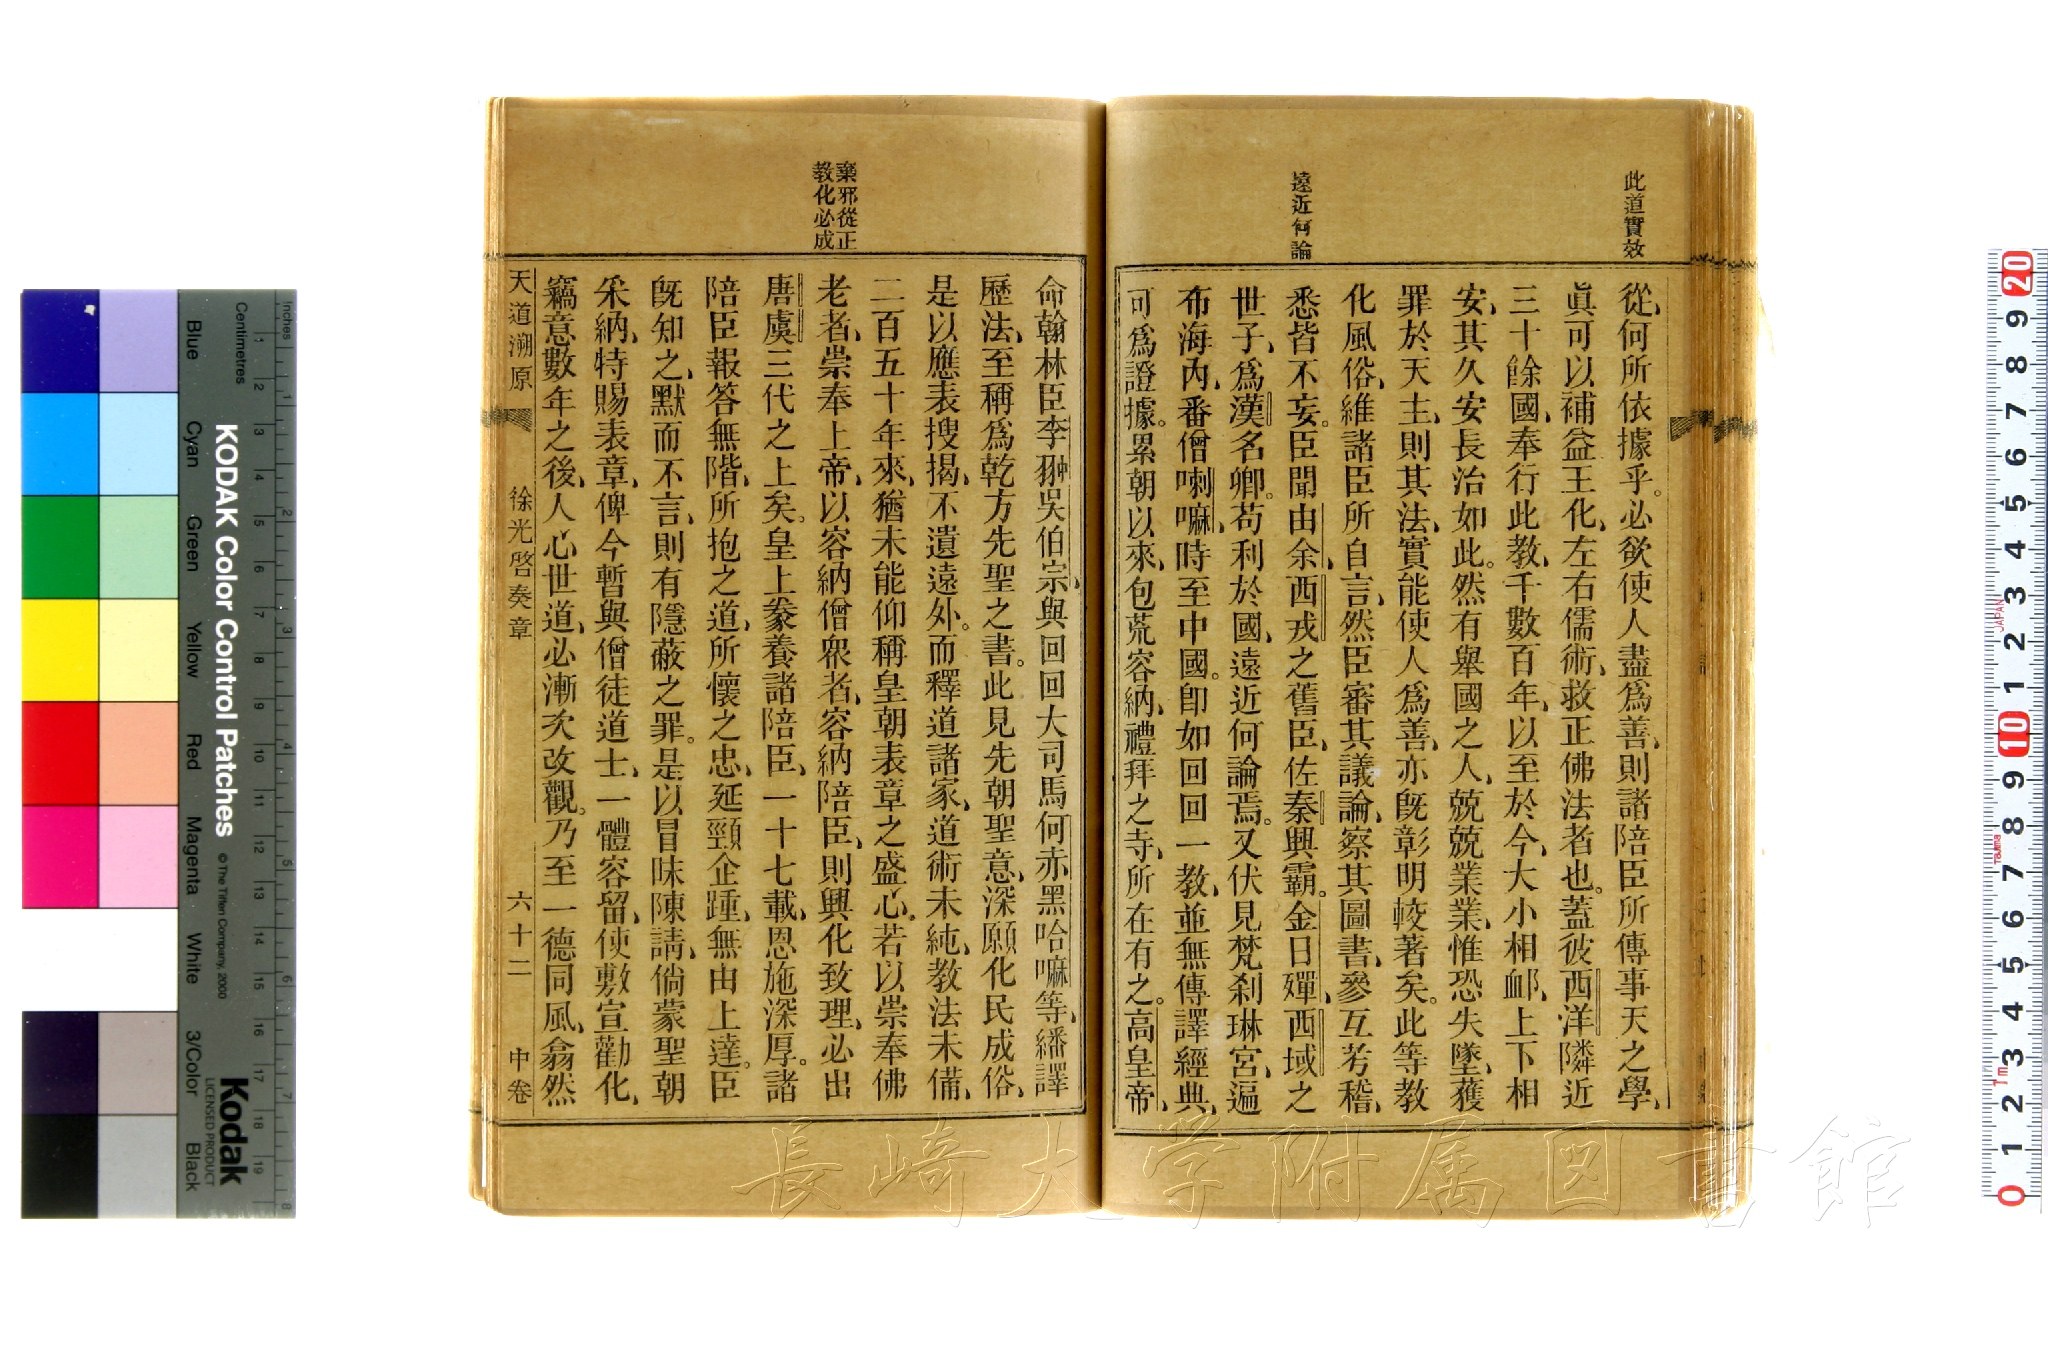 此道實效
遠近何論
從、何所依據乎。必欲使人盡爲善、則諸陪臣所傳事天之學、
眞可以補益王化、左右儒術、救正佛法者也。蓋彼西洋隣近
三十餘國、奉行此教、千數百年、以至於今、大小相衈、上下相
安、其久安長治如此。然有舉國之人、兢兢業業、惟恐失墜、獲
罪於天主、則其法、實能使人爲善、亦旣彰明較著矣。此等教
化風俗、維諸臣所自言、然臣審其議論、察其圖書、參互考稽、
悉皆不妄。臣聞由余、西戎之舊臣、佐秦興霸。金日磾、西域之
世子、爲漢名卿。苟利於國、遠近何論焉。又伏見梵刹琳宮、遍
布海內、番僧喇嘛、時至中國。卽如回回一教、並無傳譯經典、
可爲證據。累朝以來、包荒容納、禮拜之寺、所在有之。高皇帝、
棄邪從正
教化必成
命翰林臣李翀吳伯宗、與回回大司馬何赤黑哈嘛等、繙譯
歷法、至稱爲乾方先聖之書。此見先朝聖意、深願化民成俗、
是以應表搜揭、不遺遠外。而釋道諸家、道術未純、教法未備、
二百五十年來、猶未能仰稱皇朝表章之盛心。若以崇奉佛
老者、崇奉上帝、以容納僧衆者、容納陪臣、則興化致理、必出
唐虞三代之上矣。皇上豢養諸陪臣、一十七載、恩施深厚。諸
陪臣報答無階、所抱之道、所懷之忠、延頸企踵、無由上達。臣
旣知之、默而不言、則有隱蔽之罪。是以冒昧陳請、倘蒙聖朝
采納、特賜表章、俾今暫與僧徒道士、一體容留、使敷宣勸化、
竊意數年之後、人心世道、必漸次改觀。乃至一德同風、翕然
天道溯原
徐光啓奏章
六十二
中卷
KODAK Color Control Patches
© The Tiffen Company, 2000
Kodak
LICENSED PRODUCT
Inches
Centimetres
Blue
Cyan
Green
Yellow
Red
Magenta
White
3/Color
Black
長崎大学附属図書館